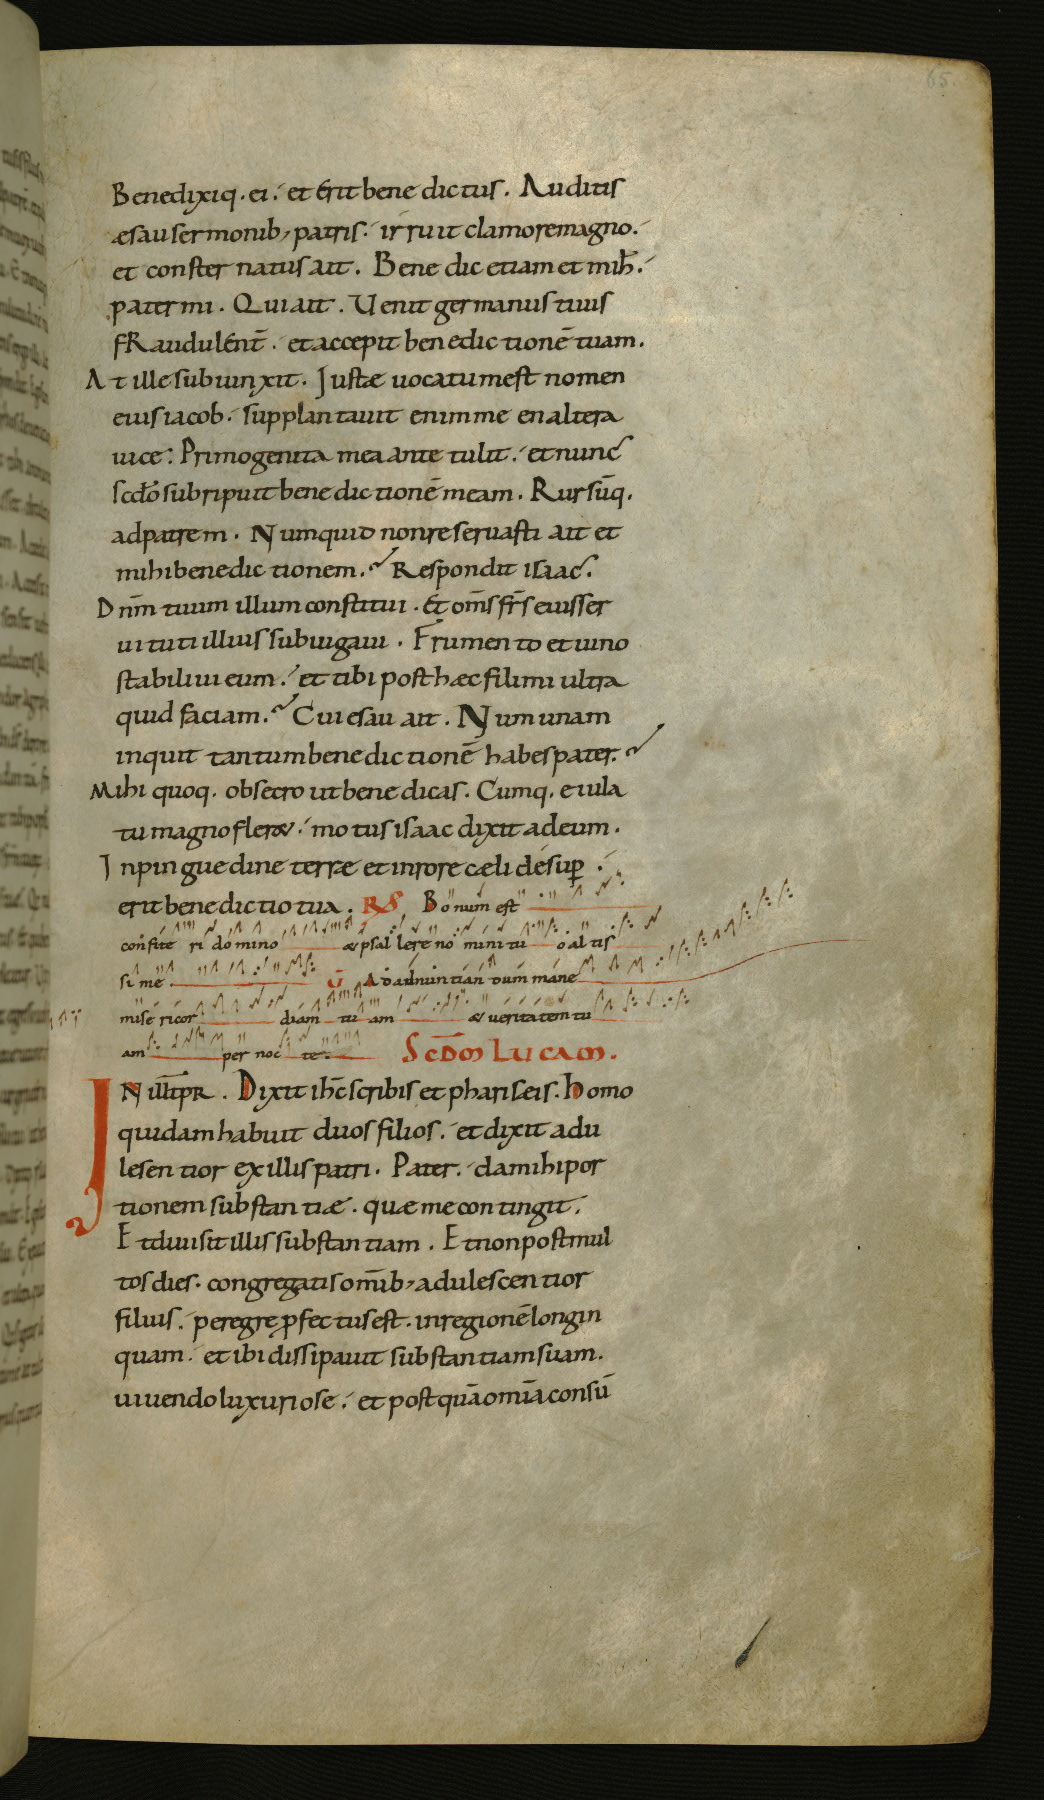 65.
Benedixiq. ei. et erit benedictus. Auditis
æsau sermonib; patris. irruit clamore magno.
et consternatus ait. Benedic etiam et mih̄.
pater mi. Qui ait. Uenit germanus tuus
fRaudulent̄. et accepit benedictionē tuam.
At ille subiunxit. Justæ uocatum est nomen
eius iacob. supplantauit enim me en altera
uice. Primogenita mea ante tulit. et nunc
scdō subripuit benedictionē meam. Rursūq.
ad patrem. Numquid non reseruasti ait et
mihi benedictionem. Respondit isaac.
Dnm̄ tuum illum constitui. Et om̄s fr̄s eius ser
uituti illius subiugaui. Frumento et uino
stabiliui eum. et tibi post hæc fili mi ultra
quid faciam. Cui esau ait. Num unam
inquit tantum benedictionē habes pater.
Mihi quoq. obsecro ut benedicas. Cumq. eiula
tu magno fleret. motus isaac dixit ad eum.
In pinguedine terræ et in rore cæli desup̄
erit benedictio tua. RS Bonum est
confite ri domino et psallere nomini tu o altis
sime. V̄ Ad adnuntiandum mane
misericor diam tu am et ueritatem tu
am per noc te.
Scd̄m Lucam.
IN ill̄ tp̄R. Dixit ih̄c scribis et phariseis. Homo
quidam habuit duos filios. et dixit adu
lesentior ex illis patri. Pater. da mihi por
tionem substantiæ. quæ me contingit.
Et diuisit illis substantiam. Et non post mul
tos dies. congregatis om̄ib; adulescentior
filius. peregre p̄fectus est. in regionē longin
quam. et ibi dissipauit substantiam suam.
uiuendo luxuriose. et postquā om̄ia consū